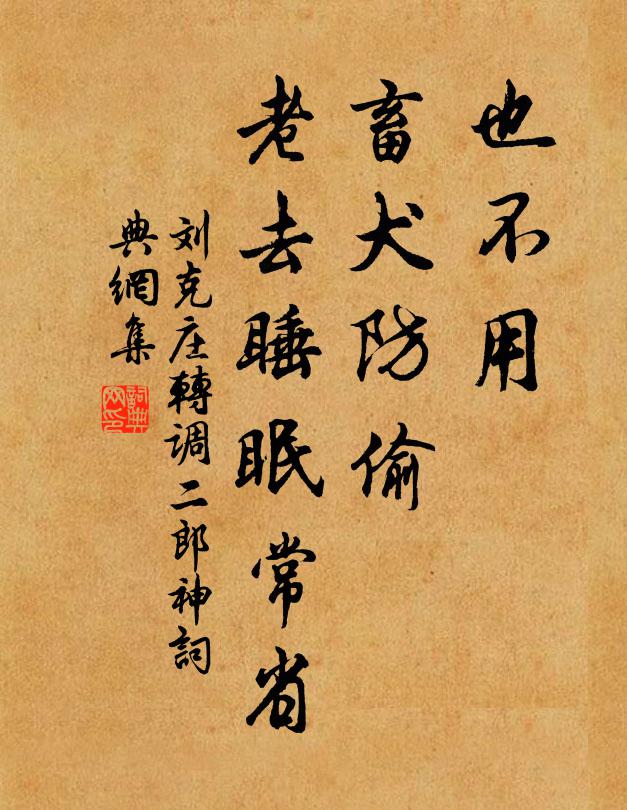 也不用
畜犬防偷
老去睡眠常省
刘克庄轉调二郎神詞
典網集
詞典网印